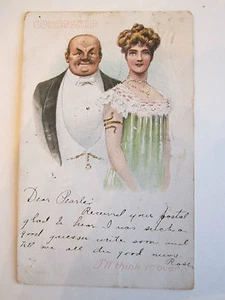 Dear Pearle;
Received your postal
glad to hear I was such a
good guesser write soon and
tell me all the good news
Rose
I'll think it over